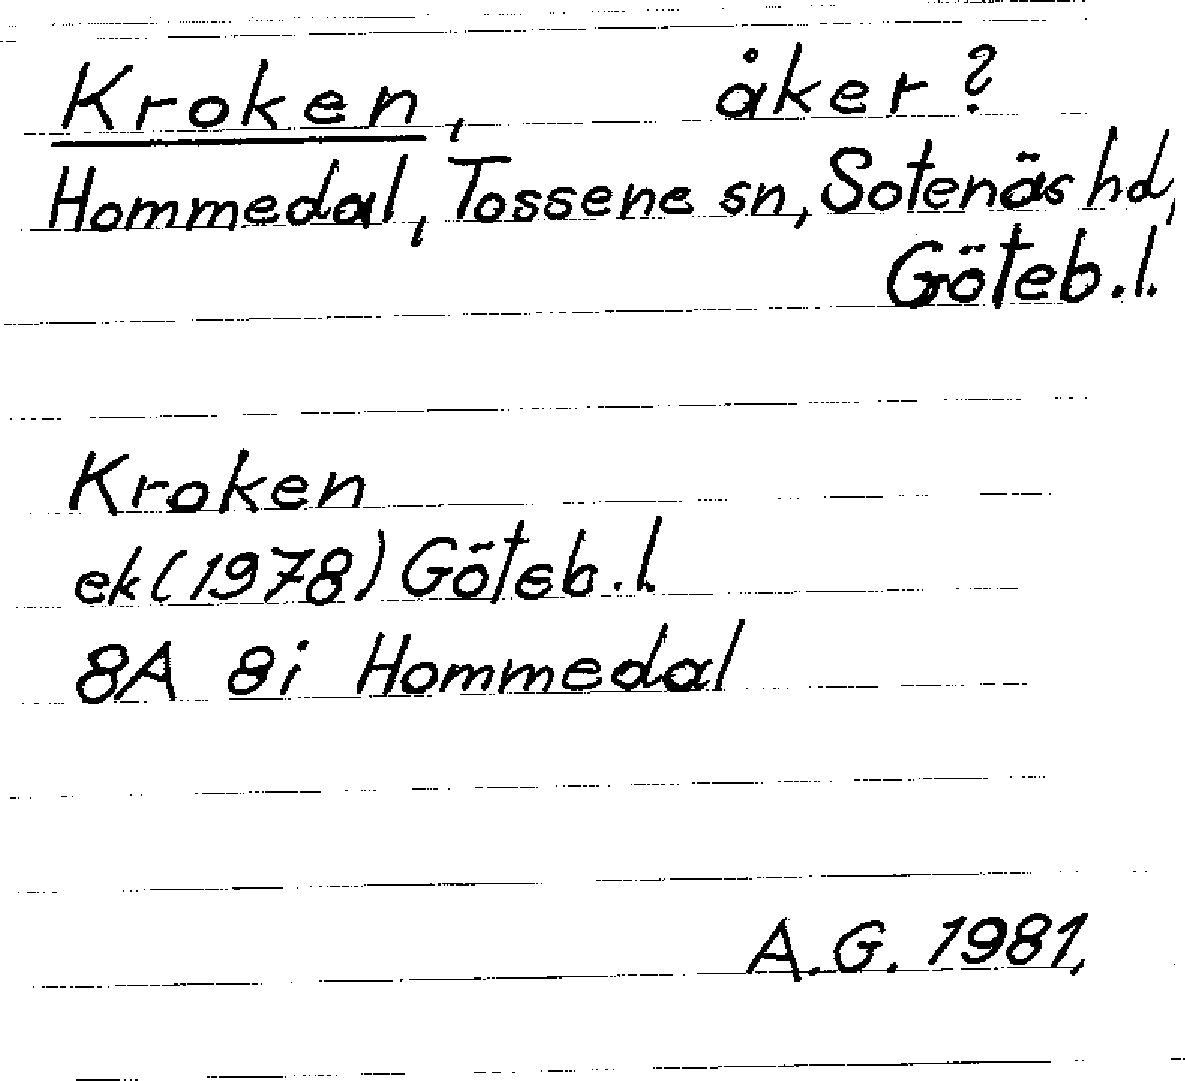 Kroken, åker?
Hommedal, Tossene sn, Sotenäs hd,
Göteb.l.
Kroken
ek(1978) Göteb.l.
8A 8i Hommedal
A.G. 1981,